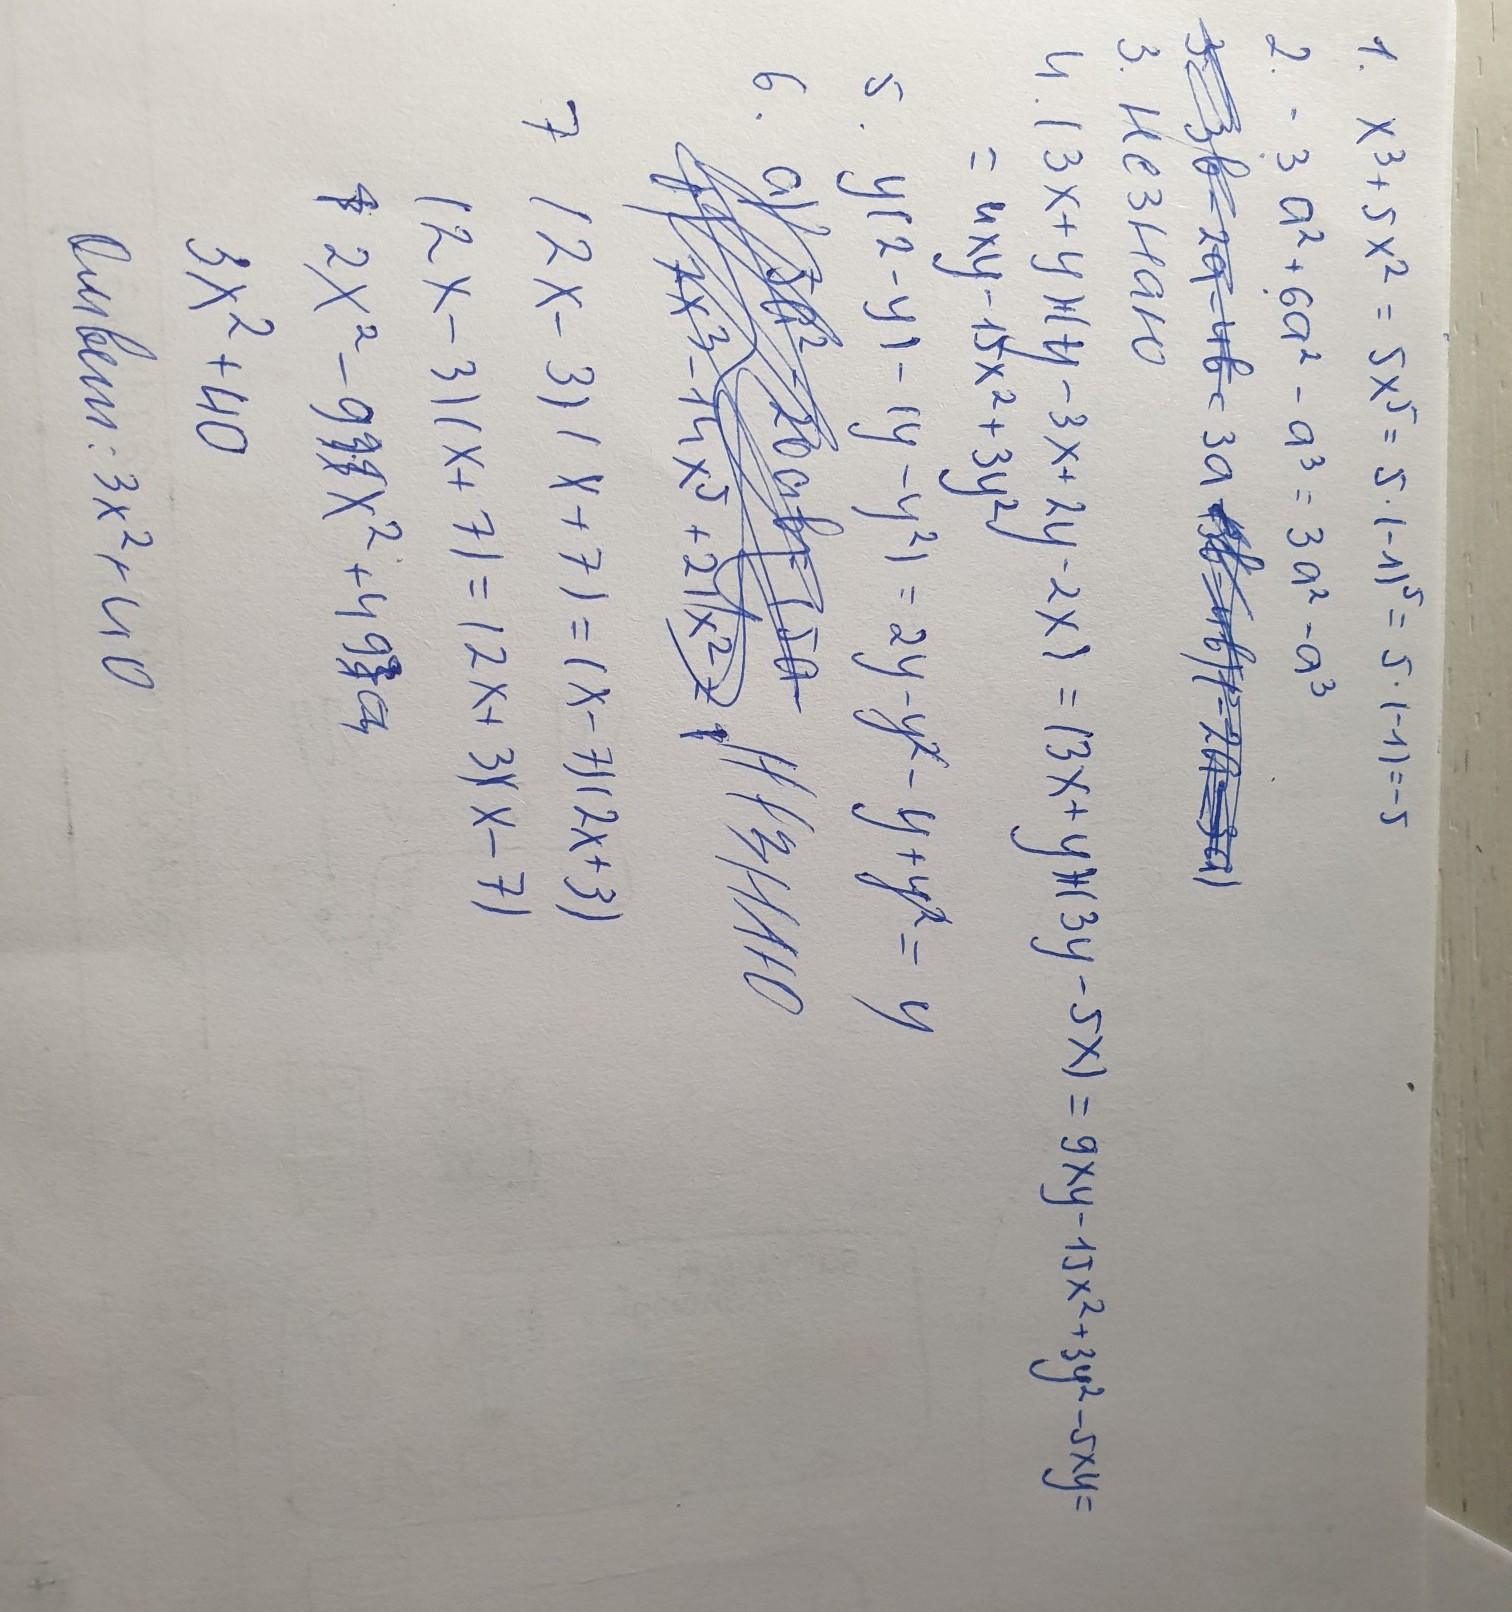 1. x³+5x² = 5x⁵ = 5·(-1)⁵ = 5·(-1) = -5
2. -3a²+6a²-a³ = 3a²-a³
3. 3b-2a-4b-3a
3. Не знаю
4. (3x+y)+(y-3x+2y-2x) = (3x+y)+(3y-5x) = 9xy-15x²+3y²-5xy=
= 4xy-15x²+3y²
5. y(2-y)-(y-y²) = 2y-y²-y+y² = y
6. a) 5a²-20ab
7x³-14x⁵+21x²
7 (2x-3)(x+7) = (x-7)(2x+3)
(2x-3)(x+7) = (2x+3)(x-7)
2x²-9x²+49
3x²+40
Ответ: 3x²+40